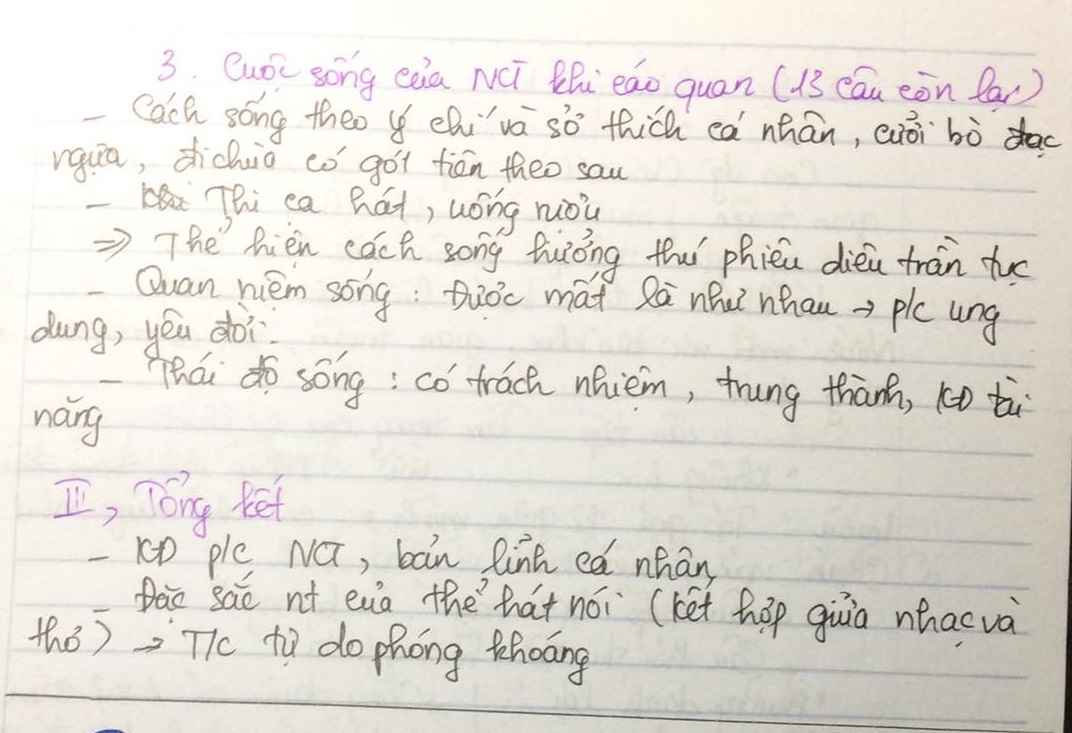 3. Cuộc sống của NCT khi cáo quan (13 câu còn lại)
- Cách sống theo ý chí và sở thích cá nhân, cưỡi bò đạc
ngựa, đi chùa có gót tiên theo sau
- Thi ca hát, uống rượu
=> Thể hiện cách sống hưởng thú phiêu diêu trần tục
- Quan niệm sống: Được mất là như nhau → p/c ung
dung, yêu đời.
- Thái độ sống: có trách nhiệm, trung thành, KĐ tài
năng
III, Tổng kết
- KĐ p/c NCT, bản lĩnh cá nhân,
- Đặc sắc nt của thể hát nói (kết hợp giữa nhạc và
thơ) → T/c tự do phóng khoáng